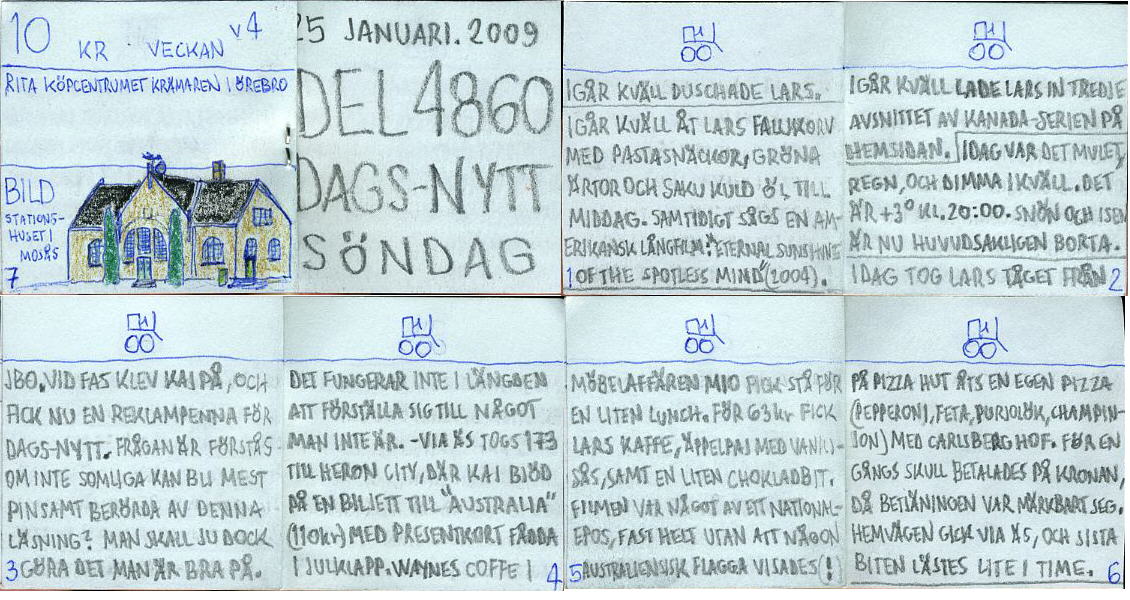 10 KR VECKAN v4
RITA KÖPCENTRUMET KRÄMAREN I ÖREBRO
BILD
STATIONS-
HUSET I
MOSÅS
7
25 JANUARI. 2009
DEL 4860
DAGS-NYTT
SÖNDAG
IGÅR KVÄLL DUSCHADE LARS.
IGÅR KVÄLL ÅT LARS FALUKORV
MED PASTASNÄCKOR, GRÖNA
ÄRTOR OCH SAKU KULD ÖL TILL
MIDDAG. SAMTIDIGT SÅGS EN AM-
ERIKANSK LÅNGFILM: "ETERNAL SUNSHINE
1 OF THE SPOTLESS MIND" (2004).
IGÅR KVÄLL LADE LARS IN TREDJE
AVSNITTET AV KANADA-SERIEN PÅ
HEMSIDAN. IDAG VAR DET MULET,
REGN, OCH DIMMA I KVÄLL. DET
ÄR +3° KL. 20:00. SNÖN OCH ISEN
ÄR NU HUVUDSAKLIGEN BORTA.
IDAG TOG LARS TÅGET FRÅN 2
JBO. VID FAS KLEV KAI PÅ, OCH
FICK NU EN REKLAMPENNA FÖR
DAGS-NYTT. FRÅGAN ÄR FÖRSTÅS
OM INTE SOMLIGA KAN BLI MEST
PINSAMT BERÖRDA AV DENNA
LÄSNING? MAN SKALL JU DOCK
3 GÖRA DET MAN ÄR BRA PÅ.
DET FUNGERAR INTE I LÄNGDEN
ATT FÖRSTÄLLA SIG TILL NÅGOT
MAN INTE ÄR. -VIA ÄS TOGS 173
TILL HERON CITY, DÄR KAI BJÖD
PÅ EN BILJETT TILL "AUSTRALIA"
(110kr) MED PRESENTKORT FÅDDA
I JULKLAPP. WAYNES COFFE I 4
MÖBELAFFÄREN MIO FICK STÅ FÖR
EN LITEN LUNCH. FÖR 63kr FICK
LARS KAFFE, ÄPPELPAJ MED VANILJ-
SÅS, SAMT EN LITEN CHOKLADBIT.
FILMEN VAR NÅGOT AV ETT NATIONAL-
EPOS, FAST HELT UTAN ATT NÅGON
5 AUSTRALIENSISK FLAGGA VISADES (!)
PÅ PIZZA HUT ÅTS EN EGEN PIZZA
(PEPPERONI, FETA, PURJOLÖK, CHAMPIN-
JON) MED CARLSBERG HOF. FÖR EN
GÅNGS SKULL BETALADES PÅ KRONAN,
DÅ BETJÄNINGEN VAR MÄRKBART SEG.
HEMVÄGEN GICK VIA ÄS, OCH SISTA
BITEN LÄSTES LITE I TIME. 6